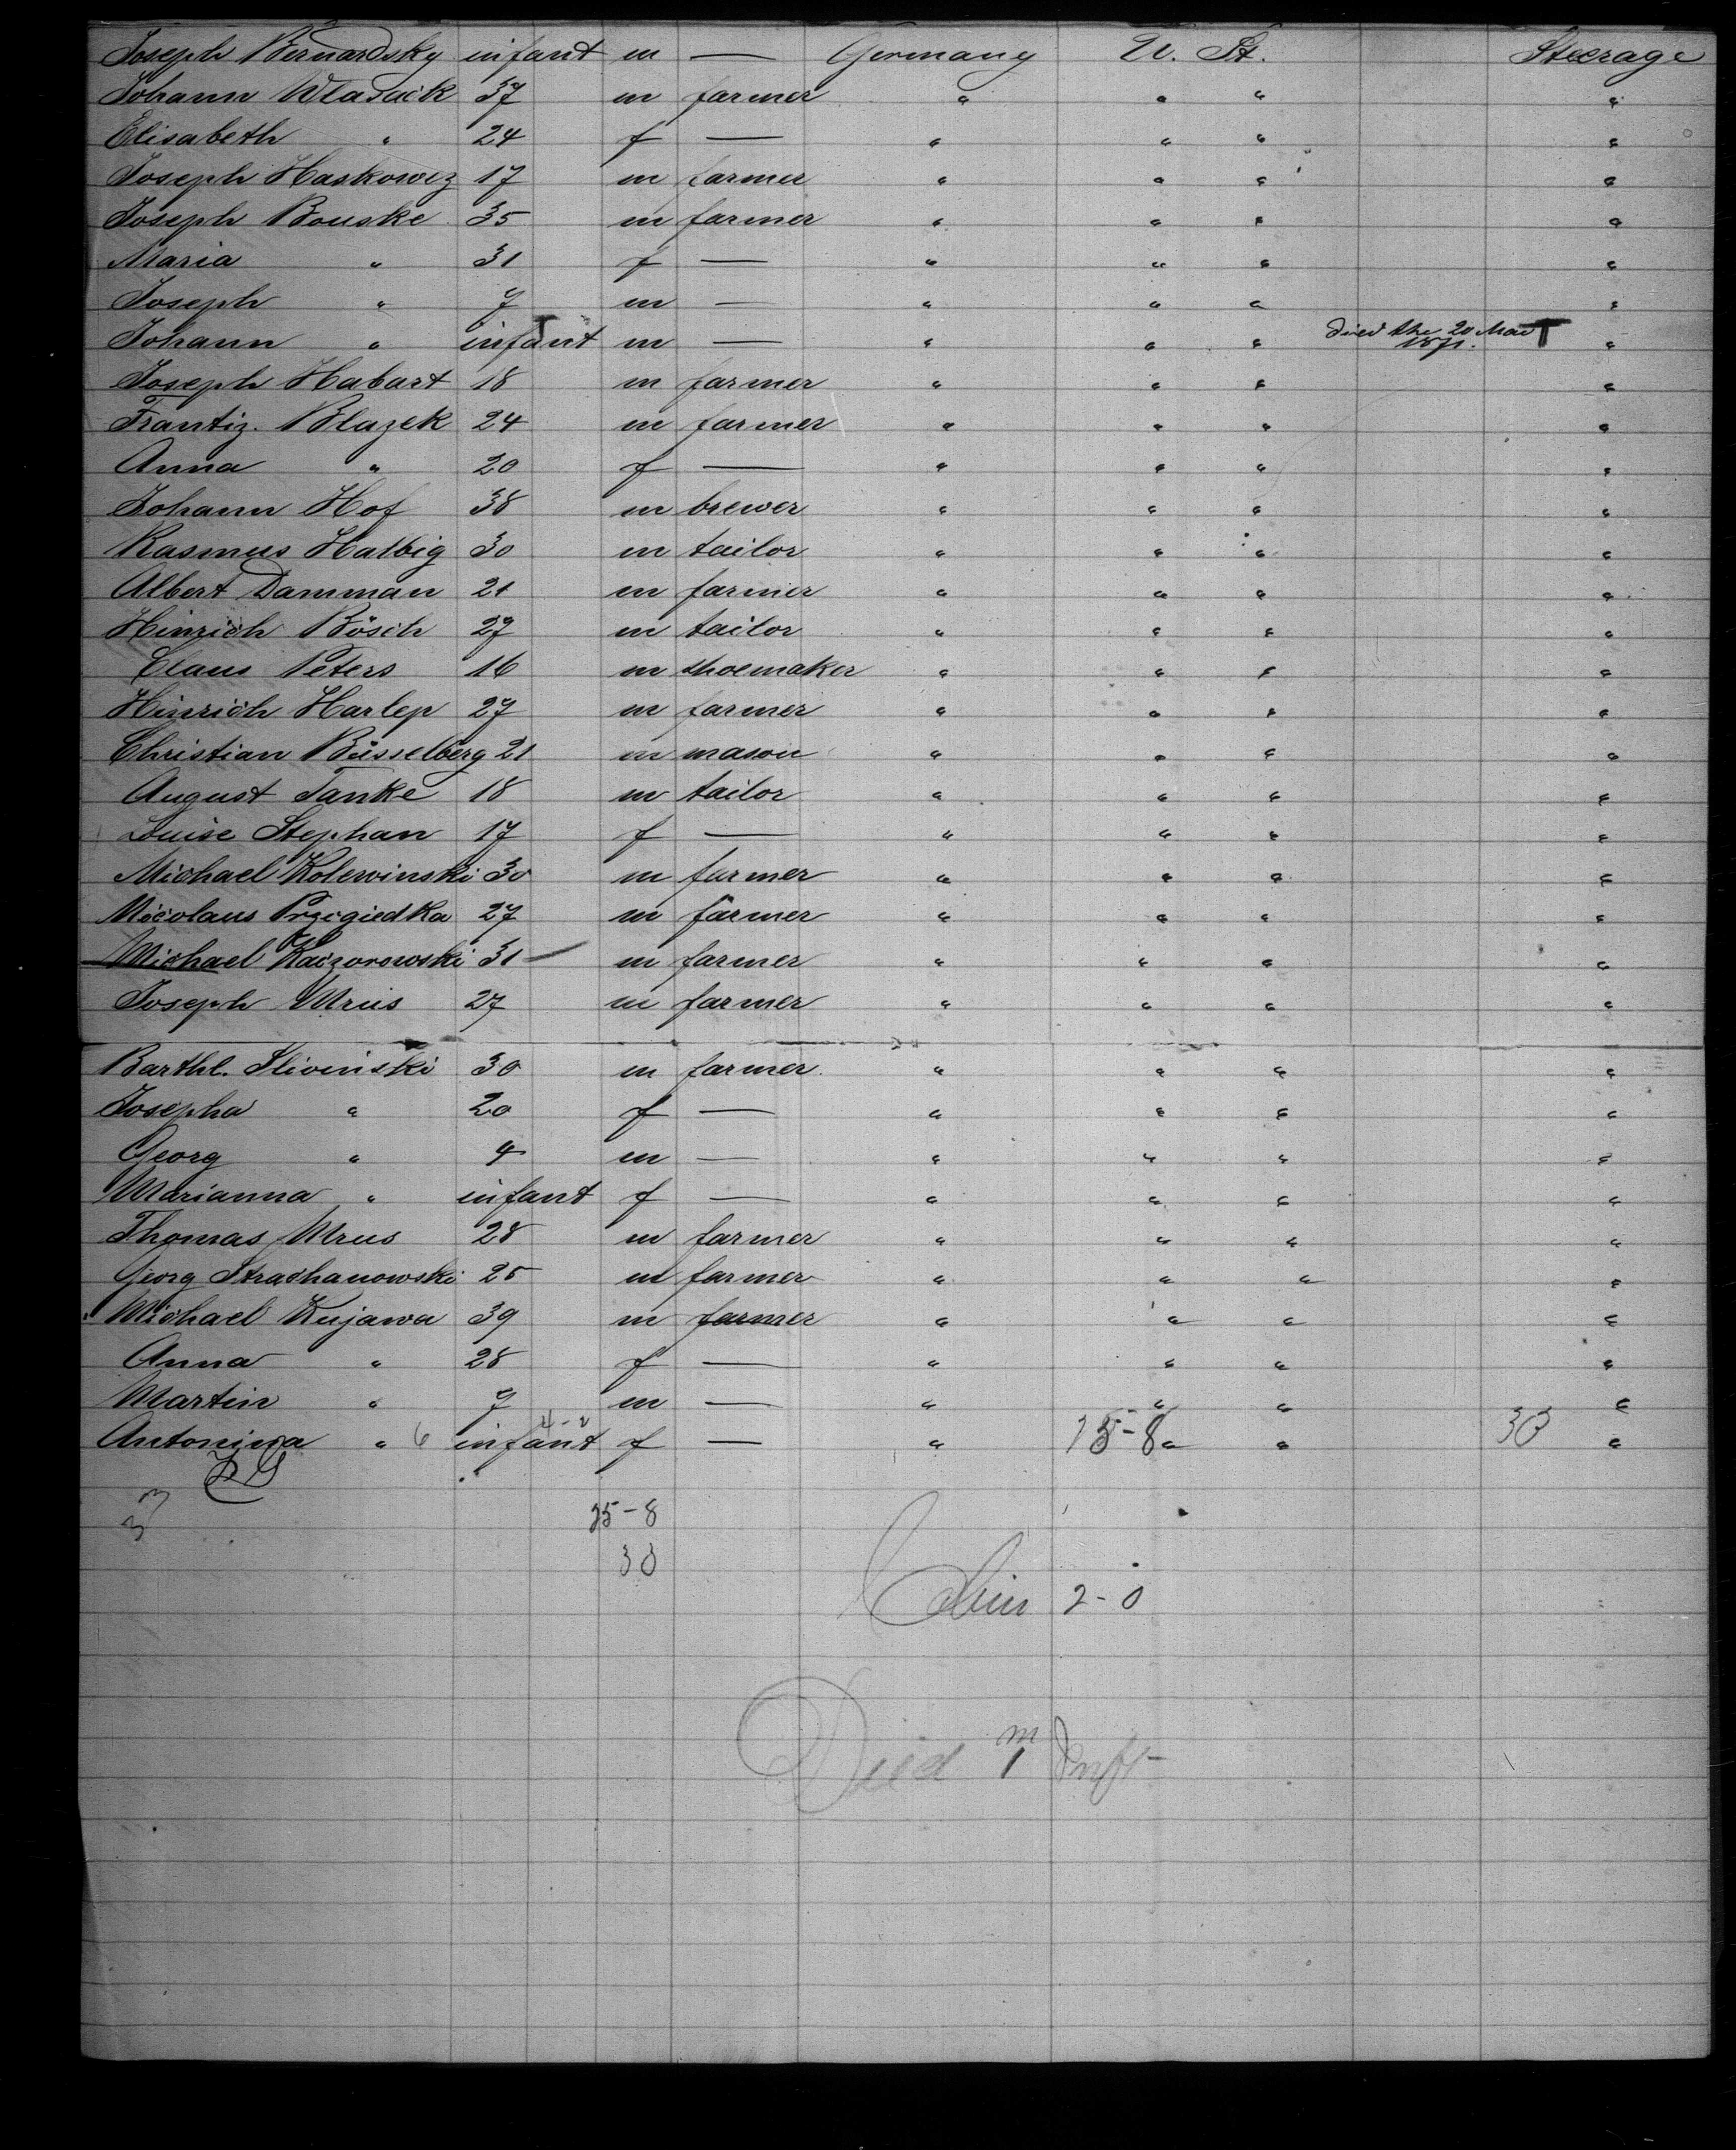 Joseph Bernardsky infant m — Germany U. St. Steerage
Johann Wlasack 37 m farmer " " " "
Elisabeth " 24 f — " " " "
Joseph Haskowez 17 m farmer " " " "
Joseph Bouske 35 m farmer " " " "
Maria " 31 f — " " " "
Joseph " 7 m — " " " "
Johann " infant m — " " " died the 20 Mai 1871. "
Joseph Habart 18 m farmer " " " "
Frantiz. Blazek 24 m farmer " " " "
Anna " 20 f — " " " "
Johann Hof 38 m brewer " " " "
Rasmus Halbig 30 m tailor " " " "
Albert Damman 21 m farmer " " " "
Hinrich Bösch 27 m tailor " " " "
Claus Peters 16 m shoemaker " " " "
Hinrich Harlep 27 m farmer " " " "
Christian Büsselberg 21 m mason " " " "
August Tanke 18 m tailor " " " "
Louise Stephan 17 f — " " " "
Michael Kolewinski 30 m farmer " " " "
Nicolaus Przcgiedka 27 m farmer " " " "
Michael Kaczorowski 31 m farmer " " " "
Joseph Mrus 27 m farmer " " " "
Barthl. Slivinski 30 m farmer " " " "
Josepha " 20 f — " " " "
Georg " 4 m — " " " "
Marianna " infant f — " " " "
Thomas Mrus 28 m farmer " " " "
Georg Strachanowski 25 m farmer " " " "
Michael Kujawa 39 m farmer " " " "
Anna " 28 f — " " " "
Martin " 7 m — " " " "
Antonina " 6 infant f — " 15-8 " " 30 "
33 25-8
30
Cabin 2-0
Died 1 m Inft